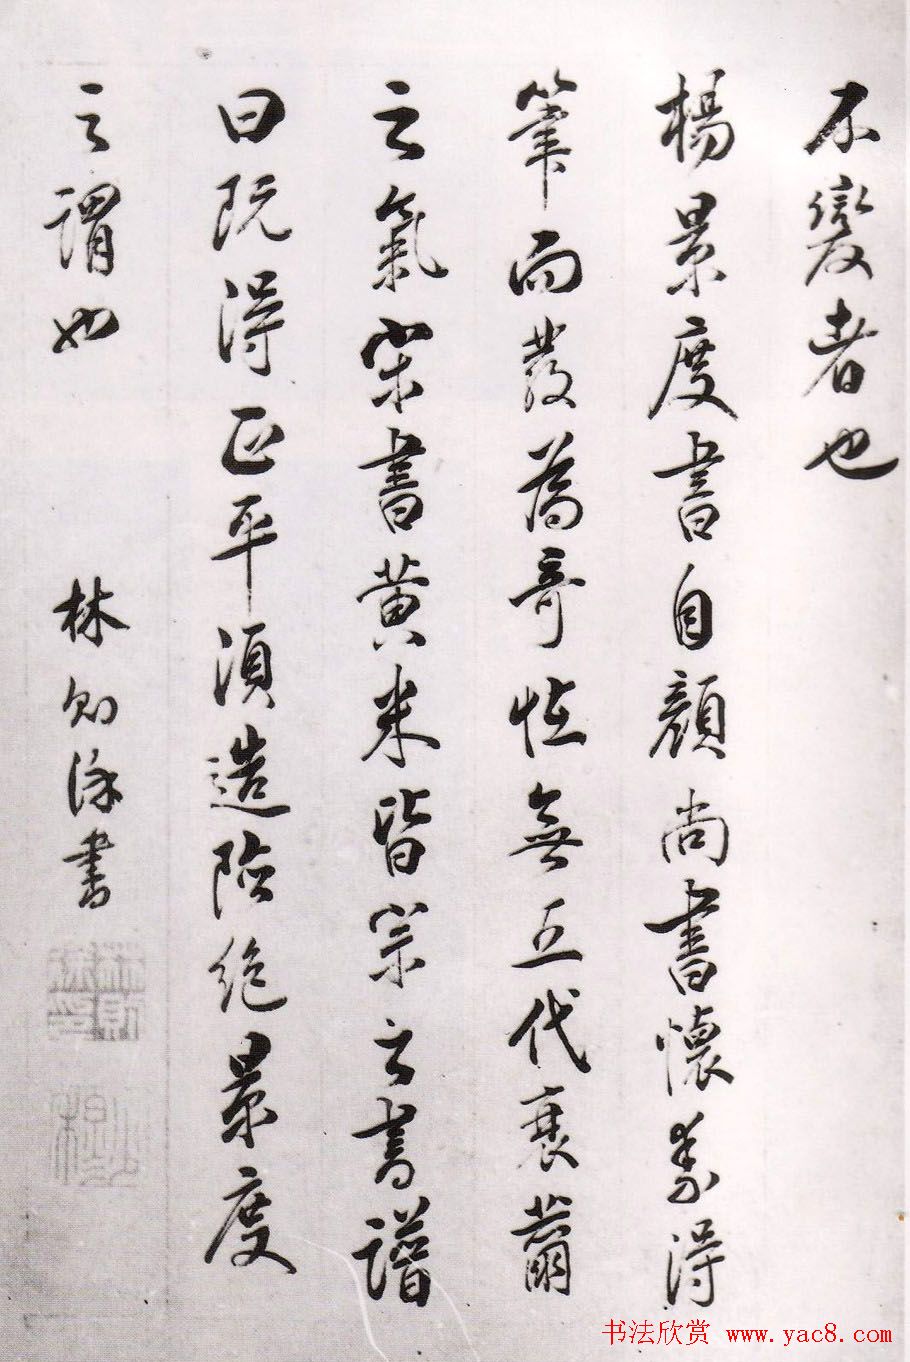 不變者也
楊景度書自顏尚書懷素得
筆而發為奇怪無五代衰薾
之氣宋書黃米皆宗之書譜
曰既得正平須造險絕景度
之謂也
林則徐書
書法欣赏 www.yac8.com